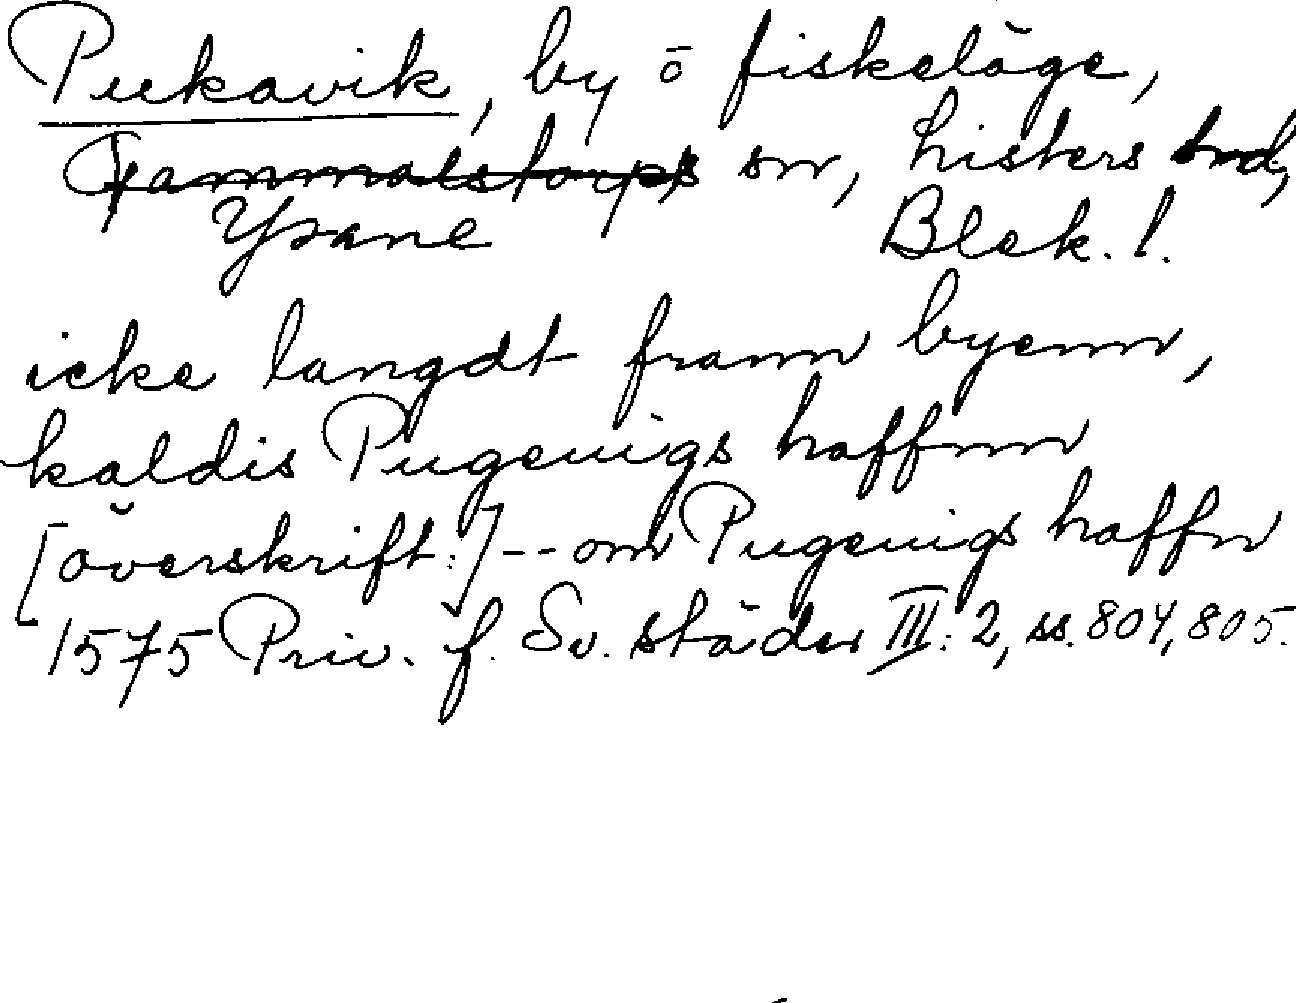 Pukavik, by ō fiskeläge,
Gammalstorps sn, Listers hd,
Ysane Blek. l.
icke langdt frann byenn,
kaldis Pugeuigs haffnn
[överskrift:] -- om Pugeuigs haffn
1575 Priv. f. Sv. städer III: 2, ss. 804, 805.